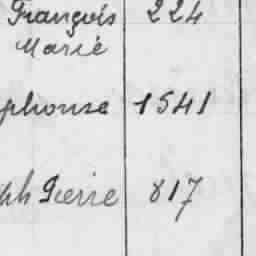 François 224
Marie
phonse 1541
ph Pierre 817